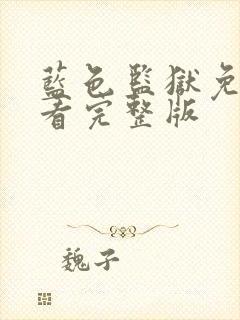 藍色監獄免
看完整版
魏子